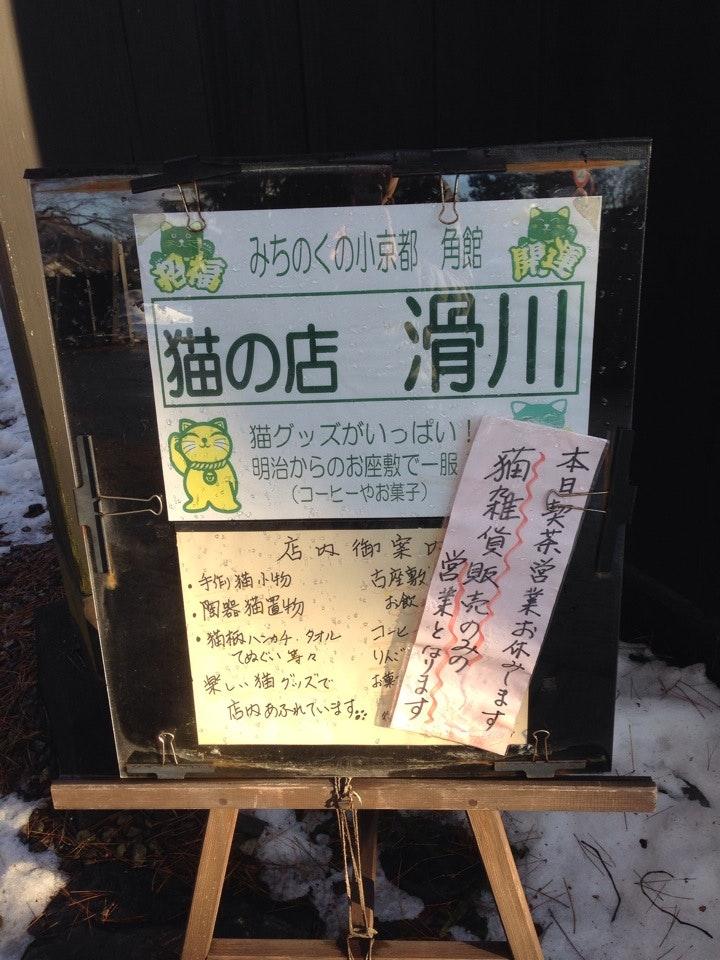 みちのくの小京都 角館
招福
開運
猫の店 滑川
猫グッズがいっぱい!
明治からのお座敷で一服
(コーヒーやお菓子)
店内御案内
・手作り猫小物
・陶器猫置物
・猫柄ハンカチ タオル
てぬぐい等々
楽しい猫グッズで
店内あふれています
古座敷
お飲
コーヒ
りんご
お菓
本日喫茶営業お休みします
猫雑貨販売のみの
営業となります